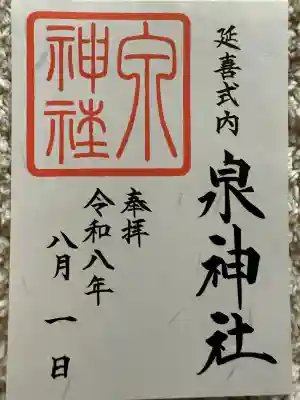 延喜式内
泉神社
奉拝
令和八年
八月一日
泉
神社